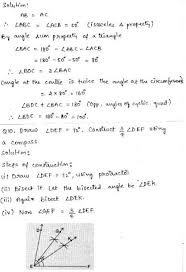 Solution:
AB = AC
∴ ∠ABC = ∠ACB = 50° (isosceles Δ property)
By angle sum property of a triangle
∠BAC = 180° - ∠ABC - ∠ACB
= 180° - 50° - 50° = 80°
∴ ∠BOC = 2∠BAC
(angle at the centre is twice the angle at the circumference)
∠BDC + ∠BAC = 180° (Opp. angles of cyclic quad)
∴ ∠BDC = 180° - 80° = 100°
Q10. Draw ∠DEF = 72°. Construct ∠DEF using
a compass.
Solution:
Steps of construction:
(i) Draw ∠DEF = 72°, using protractor
(ii) Bisect it. Let the bisected angle be ∠DEK.
(iii) Again bisect ∠DEK.
(iv) Now ∠GEF = ∠DEF